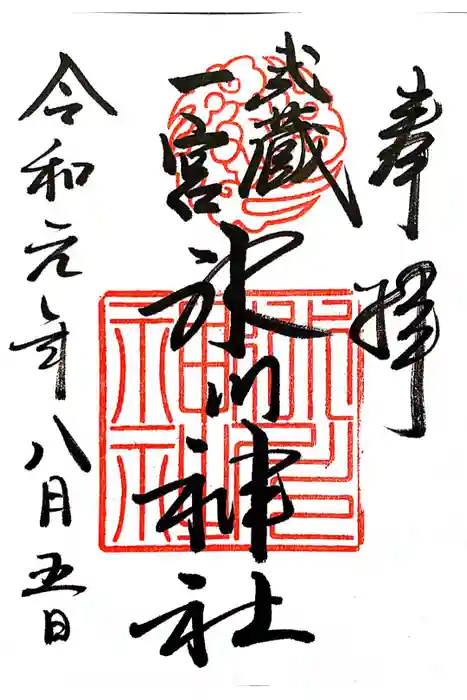 奉拝
武蔵
一宮
氷川神社
令和元年八月五日
氷川
神社